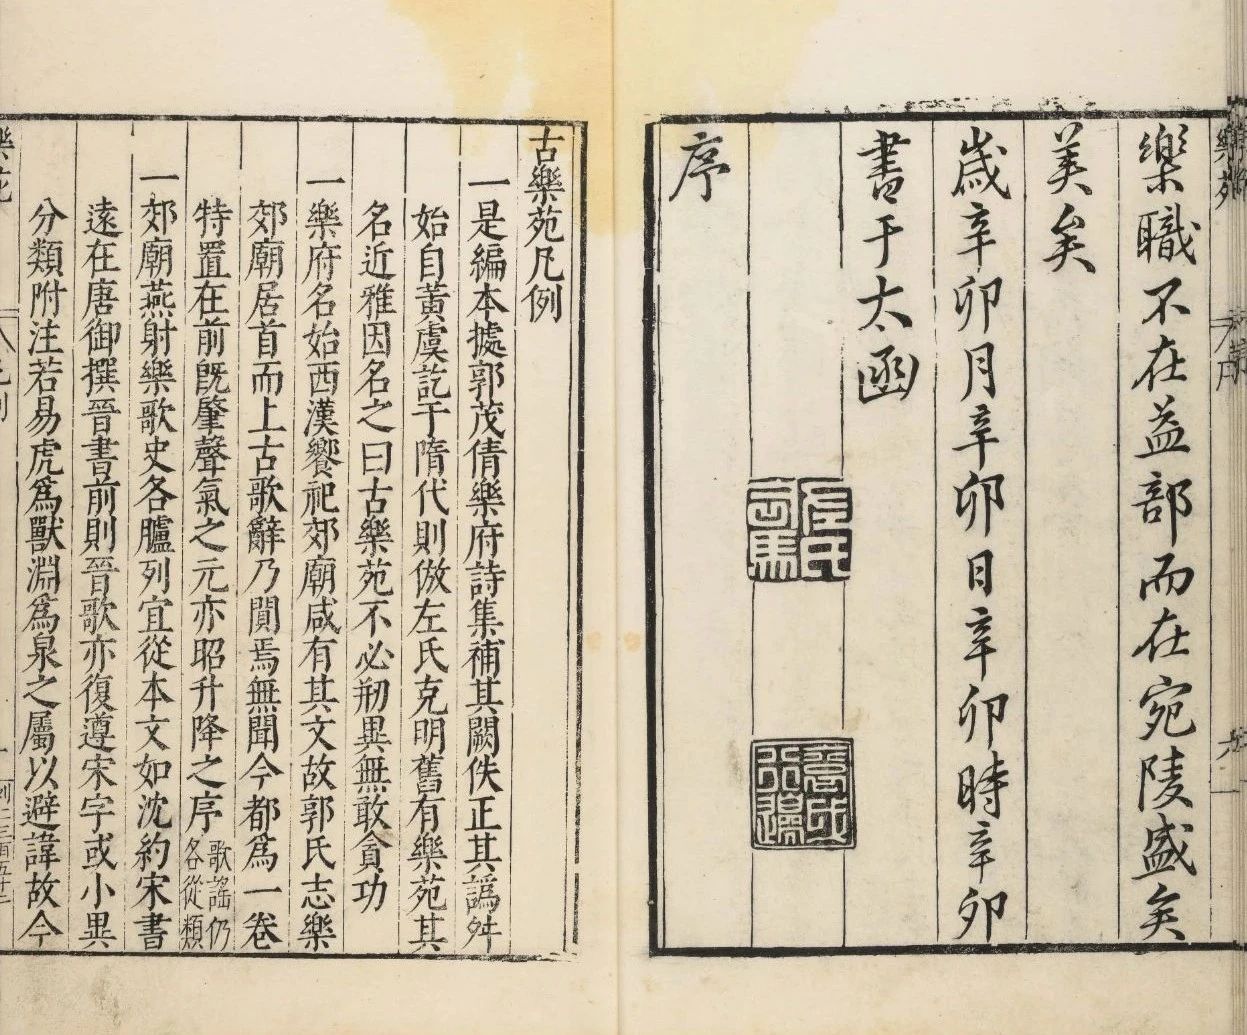 樂職不在益部而在宛陵盛矣
美矣
歲辛卯月辛卯日辛卯時辛卯
書于太函
序
古樂苑凡例
一是編本據郭茂倩樂府詩集補其闕佚正其譌舛
始自黃虞訖于隋代則倣左氏克明舊有樂苑其
名近雅因名之曰古樂苑不必刱異無敢貪功
一樂府名始西漢饗祀郊廟咸有其文故郭氏志樂
郊廟居首而上古歌辭乃闃焉無聞今都為一卷
特置在前旣肇聲氣之元亦昭升降之序歌謠仍各從類
一郊廟燕射樂歌史各臚列宜從本文如沈約宋書
遠在唐御撰晉書前則晉歌亦復遵宋字或小異
分類附注若易虎為獸淵為泉之屬以避諱故今